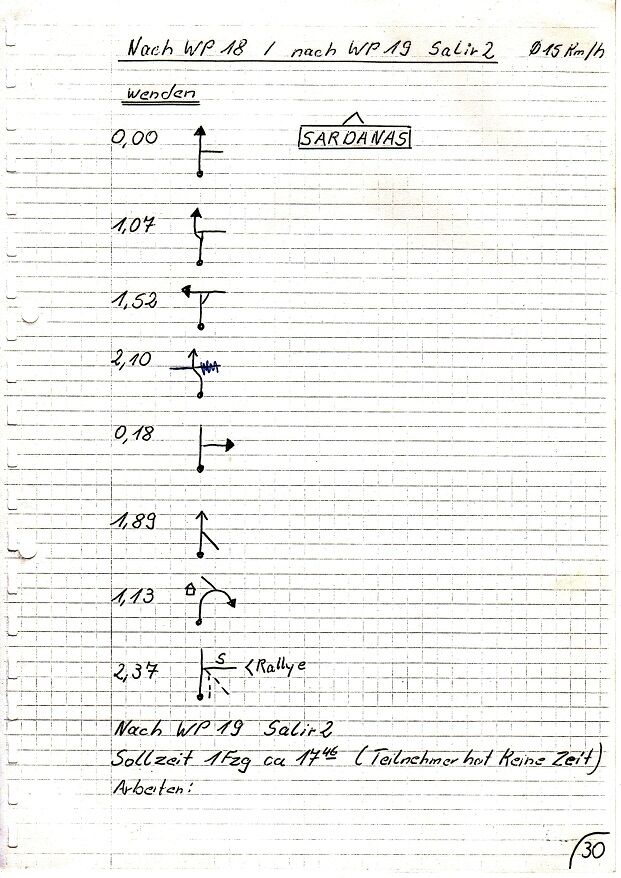 Nach WP 18 / nach WP 19 Salir 2 Ø 15 Km/h
wenden
0,00 SARDANAS
1,07
1,52
2,10
0,18
1,89
1,13
2,37 S <Rallye
Nach WP 19 Salir 2
Sollzeit 1Fzg ca 17 46 (Teilnehmer hat Keine Zeit)
Arbeiten:
30